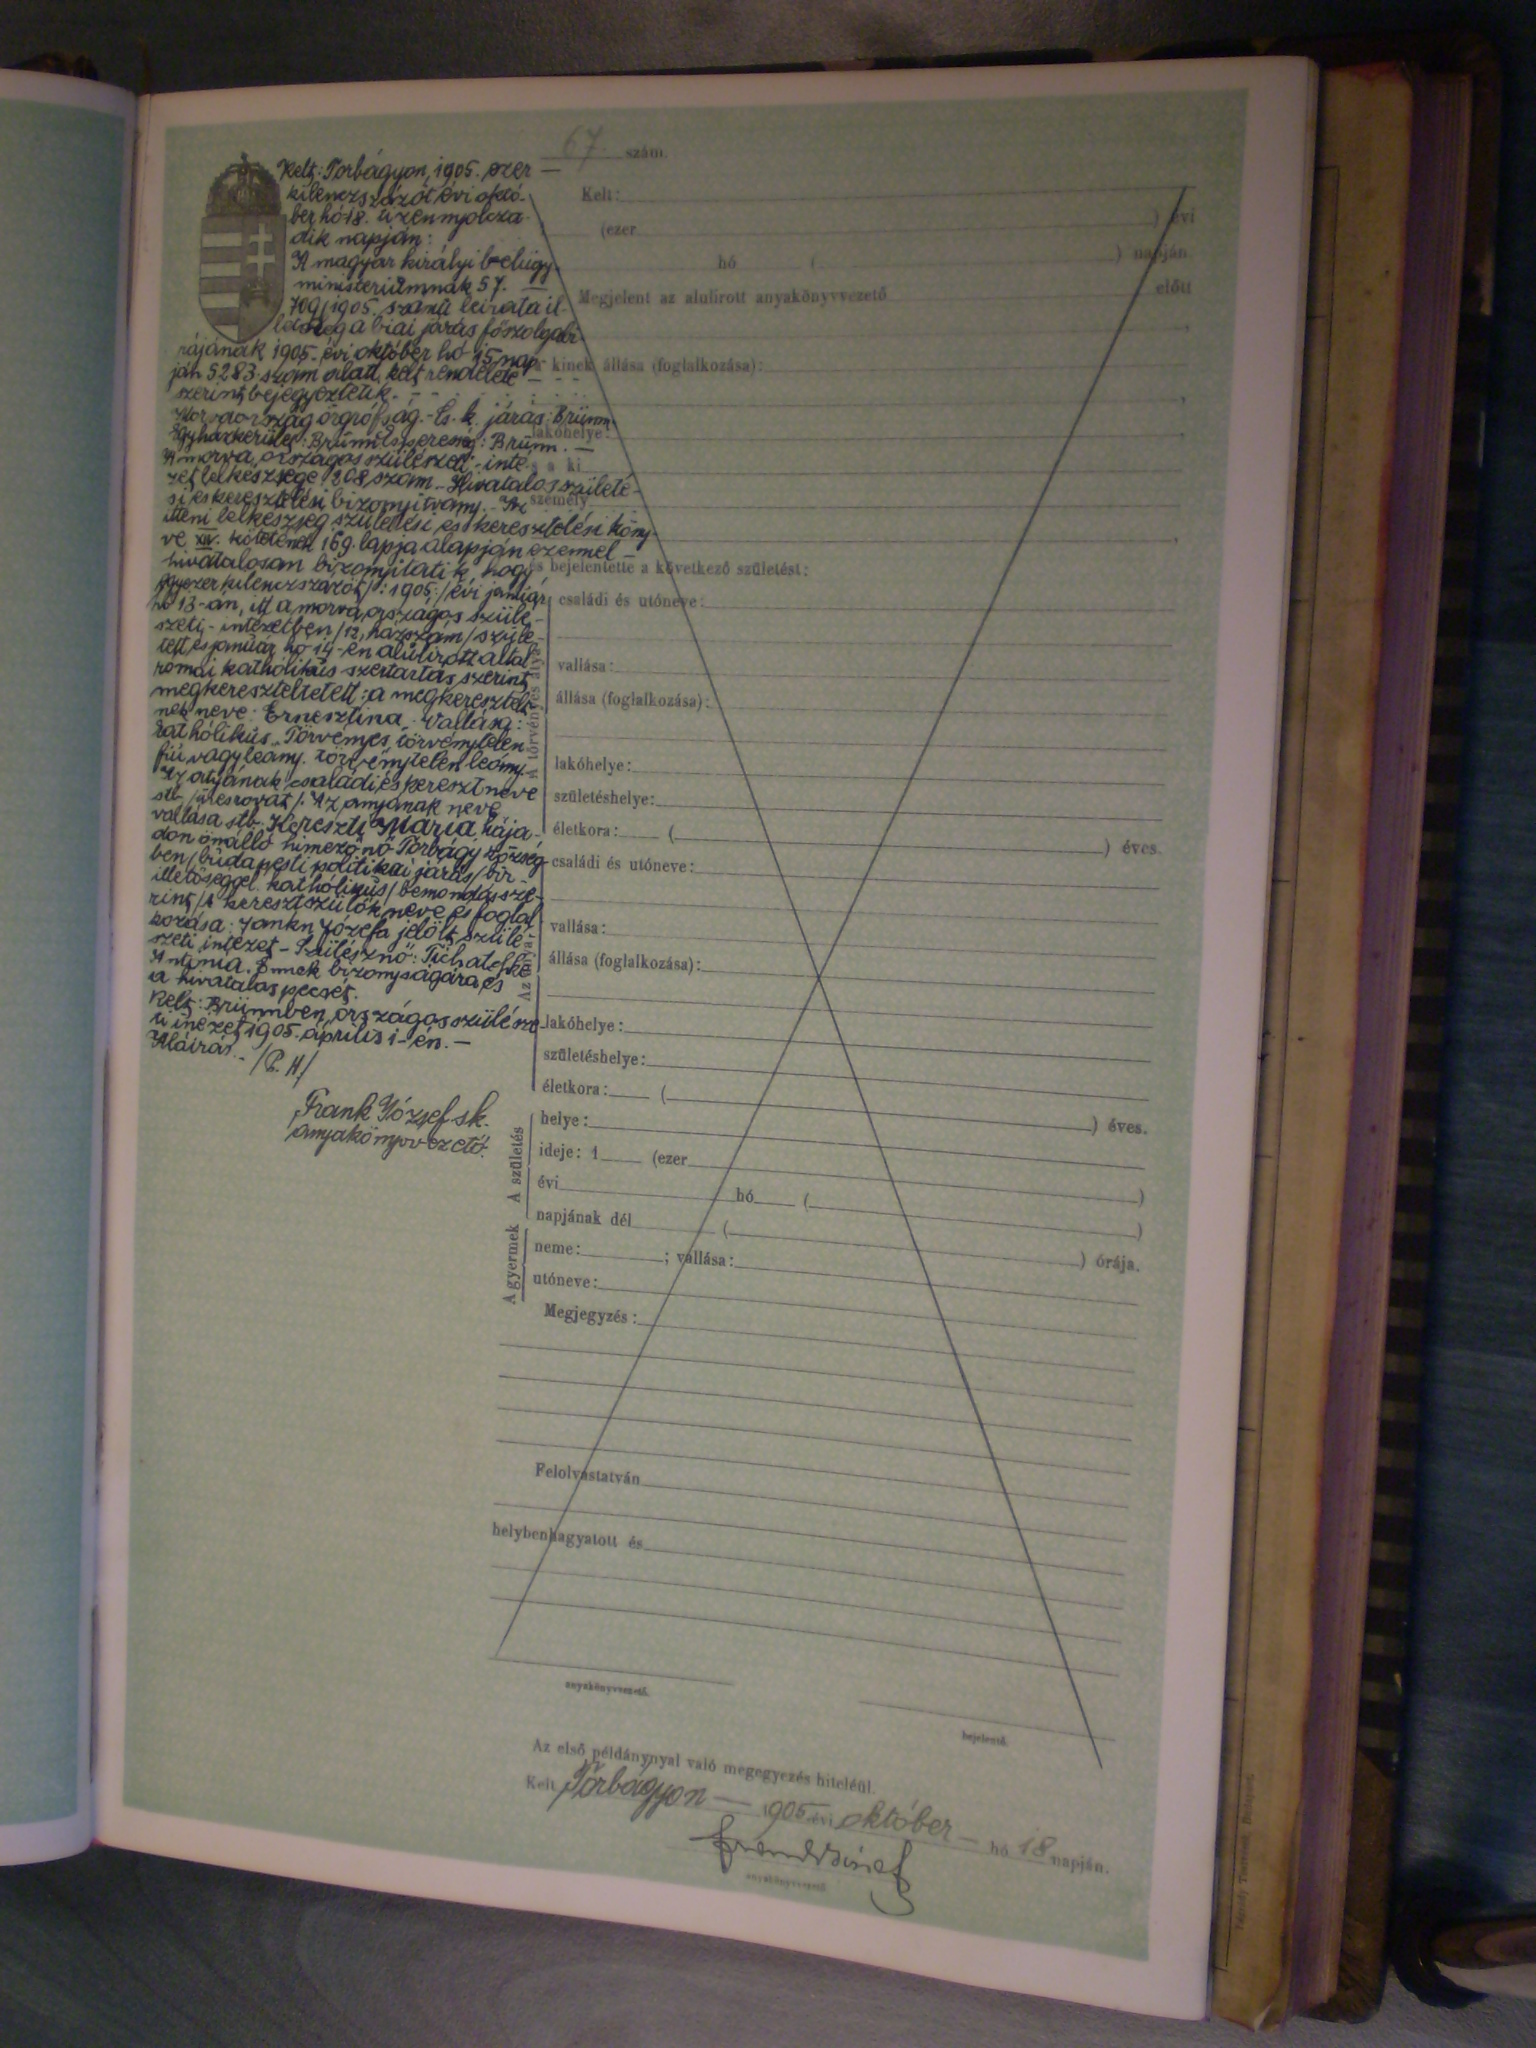 67. szám.
Kelt: Torbágyon, 1905. ezer —
kilenczszázöt évi októ-
ber hó 18. tizennyolcza
dik napján:
A magyar királyi belügy-
ministeriumnak 57. —
709/1905. számú leirata il-
letőleg a biai járás főszolgabi-
rájának 1905. évi október hó 15 nap-
ján 5283 szám alatt kelt rendelete
szerint bejegyeztetik.
Morvaország őrgrófság. - Cs. k. járás: Brünn.
Egyházkerület: Brünn Esperesség: Brünn. —
A morva országos szülészeti - inté-
zet lelkészsége 208 szám. - Hivatalos születé-
si és keresztelési bizonyítvány. - Az
itteni lelkészség születési és keresztelési köny-
ve XIV. kötetének 169. lapja alapján ezennel —
hivatalosan bizonyítatik, hogy
egyezerkilenczszázöt /: 1905 :/ évi január
hó 13-án, itt a morva országos szüle-
szeti - intézetben /12, házszám/ szüle-
tett és január hó 14-én alulirott által
római katholikus szertartás szerint
megkereszteltetett: a megkeresztelt-
nek neve: Ernesztina. Vallása:
katholikus. Törvényes, törvénytelen
fiú vagy leány: törvénytelen leány.
Az atyának családi és kereszt neve
stb. /üres rovat/. Az anyának neve
vallása stb. Kereszti Mária haja-
don önálló himezőnő Torbágy község-
ben /budapesti politikai járás/ bir
illetőséggel. katholikus /bemondás sze-
rint/ A keresztszülők neve és foglal
kozása: Jankn Józefa jelölt, szülé-
szeti intézet - Szülésznő: Tichatefke
Antonia. Ennek bizonyságára és
a hivatalos pecsét.
Kelt: Brünnben, országos szülésze-
ti inézet 1905. április 1-én. —
Aláirás. - /P. H./
Frank József sk.
anyakönyvvezető.
Kelt:
) évi
(ezer
hó ( ) napján
Megjelent az alulirott anyakönyvvezető előtt
a kinek állása (foglalkozása):
lakóhelye:
s a ki
személy
és bejelentette a következő születést:
családi és utóneve:
vallása:
állása (foglalkozása):
lakóhelye:
születéshelye:
életkora: ( ) éves.
családi és utóneve:
vallása:
állása (foglalkozása):
lakóhelye:
születéshelye:
életkora: ( ) éves.
A születés
helye:
ideje: 1 (ezer )
évi hó ( )
napjának dél ( ) órája.
A gyermek
neme: ; vallása:
utóneve:
Megjegyzés:
Felolvastatván
helybenhagyatott és
anyakönyvvezető.
bejelentő.
Az első példánynyal való megegyezés hiteléül.
Kelt Torbágyon — 1905 évi október — hó 18 napján.
anyakönyvvezető